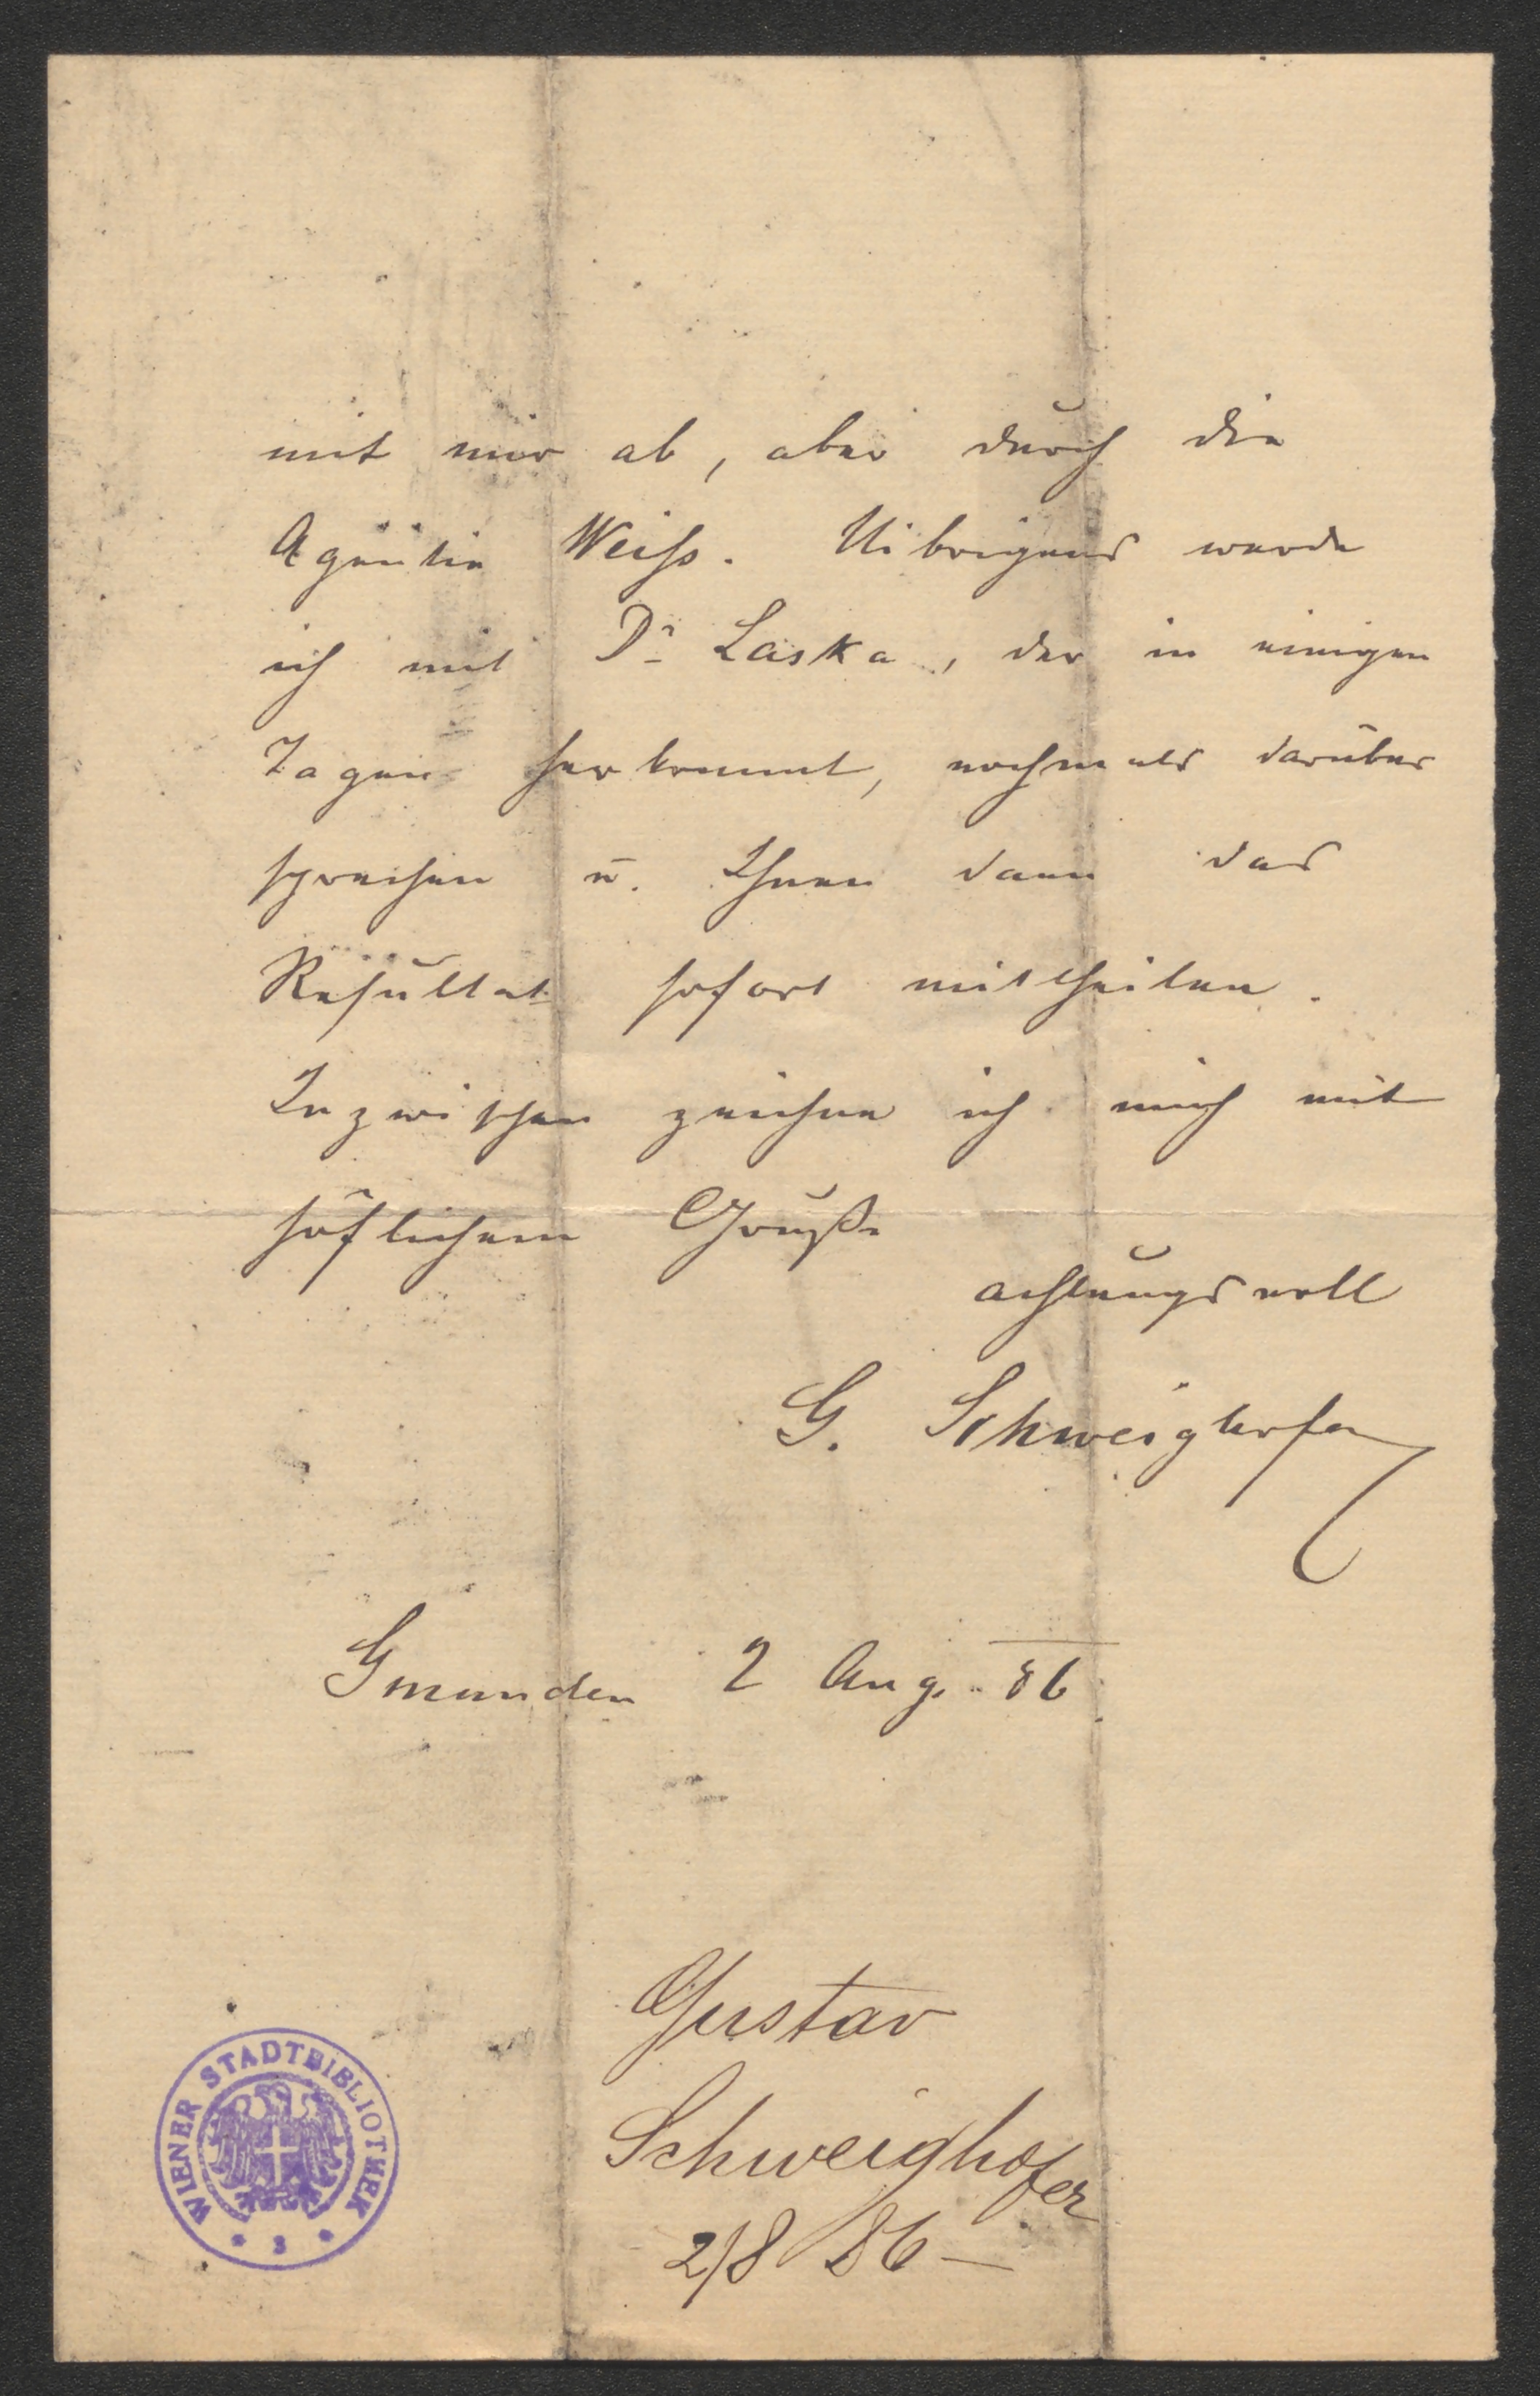 mit mir ab, aber durch die
Agentie Weiss. Uibrigens werde
ich mit Dr Laska, der in einigen
Tagen herkommt, nochmals darüber
sprechen u. Ihnen dann das
Resultat sofort mittheilen.
Inzwischen zeichne ich mich mit
höflichem Gruße
achtungsvoll
G. Schweighofer
Gmunden 2 Aug. 86
Gustav
Schweighofer
2/8 86 –
WIENER STADTBIBLIOTHEK
* 3 *